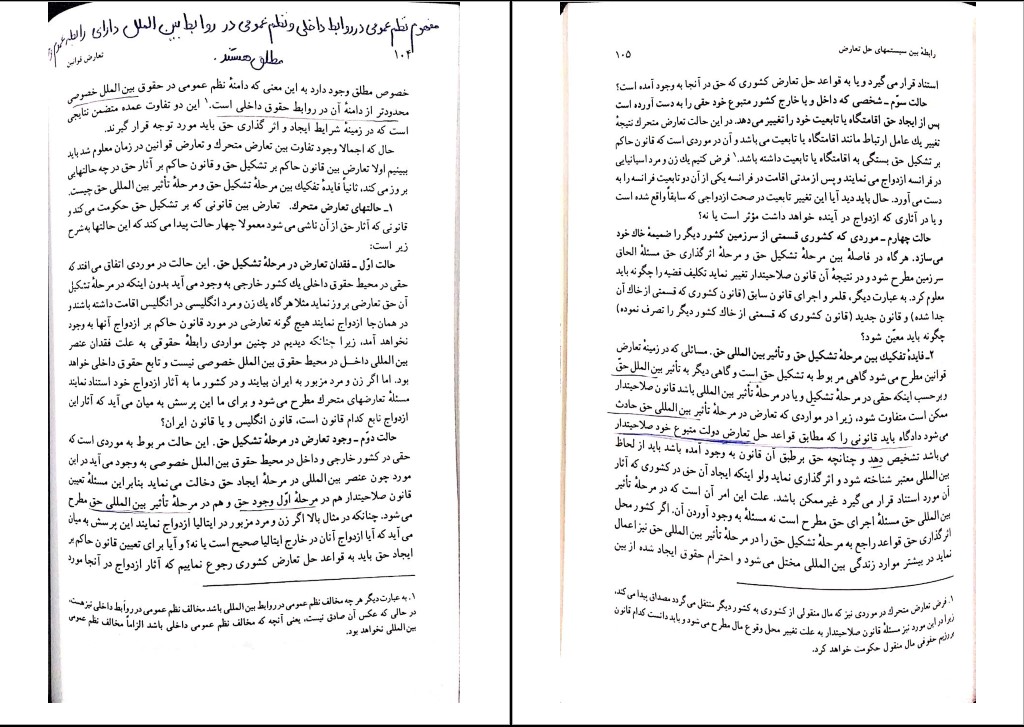 مفهوم نظم عمومی در روابط داخلی و نظم عمومی در روابط بین الملل دارای رابطه عموم و
مطلق هستند .
۱۰۴
تعارض قوانین
خصوص مطلق وجود دارد به این معنی که دامنهٔ نظم عمومی در حقوق بین‌الملل خصوصی
محدودتر از دامنهٔ آن در روابط حقوق داخلی است.۱ این دو تفاوت عمده متضمن نتایجی
است که در زمینهٔ شرایط ایجاد و اثرگذاری حق باید مورد توجه قرار گیرند.
حال که اجمالا وجود تفاوت بین تعارض متحرک و تعارض قوانین در زمان معلوم شد باید
ببینیم اولا تعارض بین قانون حاکم بر تشکیل حق و قانون حاکم بر آثار حق در چه حالتهایی
بروز می‌کند، ثانیاً فایدهٔ تفکیک بین مرحلهٔ تشکیل حق و مرحلهٔ تأثیر بین‌المللی حق چیست.
۱ـ حالتهای تعارض متحرک. تعارض بین قانونی که بر تشکیل حق حکومت می‌کند و
قانونی که آثار حق از آن ناشی می‌شود معمولا چهار حالت پیدا می‌کند که این حالتها به‌شرح
زیر است:
حالت اوّل ـ فقدان تعارض در مرحلهٔ تشکیل حق. این حالت در موردی اتفاق می‌افتد که
حقی در محیط حقوق داخلی یك کشور خارجی به وجود می‌آید بدون اینکه در مرحلهٔ تشکیل
آن حق تعارضی بروز نماید مثلا هرگاه یك زن و مرد انگلیسی در انگلیس اقامت داشته باشند و
در همان‌جا ازدواج نمایند هیچ گونه تعارضی در مورد قانون حاکم بر ازدواج آنها به وجود
نخواهد آمد، زیرا چنانکه دیدیم در چنین مواردی رابطهٔ حقوقی به علت فقدان عنصر
بین‌المللی داخل در محیط حقوق بین‌الملل خصوصی نیست و تابع حقوق داخلی خواهد
بود. اما اگر زن و مرد مزبور به ایران بیایند و در کشور ما به آثار ازدواج خود استناد نمایند
مسئلهٔ تعارضهای متحرك مطرح می‌شود و برای ما این پرسش به میان می‌آید که آثار این
ازدواج تابع کدام قانون است، قانون انگلیس و یا قانون ایران؟
حالت دوّم ـ وجود تعارض در مرحلهٔ تشکیل حق. این حالت مربوط به موردی است که
حقی در کشور خارجی و داخل در محیط حقوق بین‌الملل خصوصی به وجود می‌آید در این
مورد چون عنصر بین‌المللی در مرحلهٔ ایجاد حق دخالت می‌نماید بنابراین مسئلهٔ تعیین
قانون صلاحیتدار هم در مرحلهٔ اوّل وجود حق و هم در مرحلهٔ تأثیر بین‌المللی حق مطرح
می‌شود. چنانکه در مثال بالا اگر زن و مرد مزبور در ایتالیا ازدواج نمایند این پرسش به میان
می‌آید که آیا ازدواج آنان در خارج ایتالیا صحیح است یا نه؟ و آیا برای تعیین قانون حاکم بر
ایجاد حق باید به قواعد حل تعارض کشوری رجوع نماییم که آثار ازدواج در آنجا مورد
۱. به عبارت دیگر هر چه مخالف نظم عمومی در روابط بین‌المللی باشد مخالف نظم عمومی در روابط داخلی نیز هست،
در حالی که عکس آن صادق نیست، یعنی آنچه که مخالف نظم عمومی داخلی باشد الزاماً مخالف نظم عمومی
بین‌المللی نخواهد بود.
رابطهٔ بین سیستمهای حل تعارض
۱۰۵
استناد قرار می‌گیرد و یا به قواعد حل تعارض کشوری که حق در آنجا به وجود آمده است؟
حالت سوّم ـ شخصی که داخل و یا خارج کشور متبوع خود حقی را به دست آورده است
پس از ایجاد حق اقامتگاه یا تابعیت خود را تغییر می‌دهد. در این حالت تعارض متحرك نتیجهٔ
تغییر یك عامل ارتباط مانند اقامتگاه یا تابعیت می‌باشد و آن در موردی است که قانون حاکم
بر تشکیل حق بستگی به اقامتگاه یا تابعیت داشته باشد.۱ فرض کنیم یك زن و مرد اسپانیایی
در فرانسه ازدواج می‌نمایند و پس از مدتی اقامت در فرانسه یکی از آن دو تابعیت فرانسه را به
دست می‌آورد. حال باید دید آیا این تغییر تابعیت در صحت ازدواجی که سابقاً واقع شده است
و یا در آثاری که ازدواج در آینده خواهد داشت مؤثر است یا نه؟
حالت چهارم ـ موردی که کشوری قسمتی از سرزمین کشور دیگر را ضمیمهٔ خاك خود
می‌سازد. هرگاه در فاصلهٔ بین مرحلهٔ تشکیل حق و مرحلهٔ اثرگذاری حق مسئلهٔ الحاق
سرزمین مطرح شود و در نتیجهٔ آن قانون صلاحیتدار تغییر نماید تکلیف قضیه را چگونه باید
معلوم کرد. به عبارت دیگر، قلمرو اجرای قانون سابق (قانون کشوری که قسمتی از خاك آن
جدا شده) و قانون جدید (قانون کشوری که قسمتی از خاك کشور دیگر را تصرف نموده)
چگونه باید معیّن شود؟
۲ـ فایدهٔ تفکیك بین مرحلهٔ تشکیل حق و تأثیر بین‌المللی حق. مسائلی که در زمینهٔ تعارض
قوانین مطرح می‌شود گاهی مربوط به تشکیل حق است و گاهی دیگر به تأثیر بین‌الملل حق
و برحسب اینکه حقی در مرحلهٔ تشکیل و یا در مرحلهٔ تأثیر بین‌المللی باشد قانون صلاحیتدار
ممکن است متفاوت شود، زیرا در مواردی که تعارض در مرحلهٔ تأثیر بین‌المللی حق حادث
می‌شود دادگاه باید قانونی را که مطابق قواعد حل تعارض دولت متبوع خود صلاحیتدار
می‌باشد تشخیص دهد و چنانچه حق برطبق آن قانون به وجود آمده باشد باید از لحاظ
بین‌المللی معتبر شناخته شود و اثرگذاری نماید ولو اینکه ایجاد آن حق در کشوری که آثار
آن مورد استناد قرار می‌گیرد غیرممکن باشد. علت این امر آن است که در مرحلهٔ تأثیر
بین‌المللی حق مسئلهٔ اجرای حق مطرح است نه مسئلهٔ به وجود آوردن آن. اگر کشور محل
اثرگذاری حق قواعد راجع به مرحلهٔ تشکیل حق را در مرحلهٔ تأثیر بین‌المللی حق نیز اعمال
نماید در بیشتر موارد زندگی بین‌المللی مختل می‌شود و احترام حقوق ایجاد شده از بین
۱. فرض تعارض متحرك در موردی نیز که مال منقولی از کشوری به کشور دیگر منتقل می‌گردد مصداق پیدا می‌کند،
زیرا در این مورد نیز مسئلهٔ قانون صلاحیتدار به علت تغییر محل وقوع مال مطرح می‌شود و باید دانست کدام قانون
بر رژیم حقوقی مال منقول حکومت خواهد کرد.